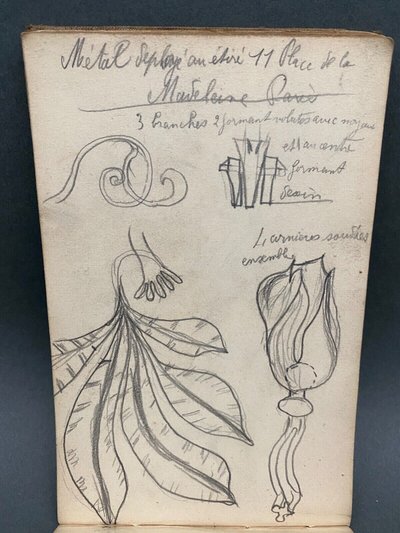 Métal deployé au étiré 11 Place de la
Madeleine Paris
3 branches 2 formant volutes avec noyau
et 1 au centre
formant
dessin
4 carnières soudées
ensemble